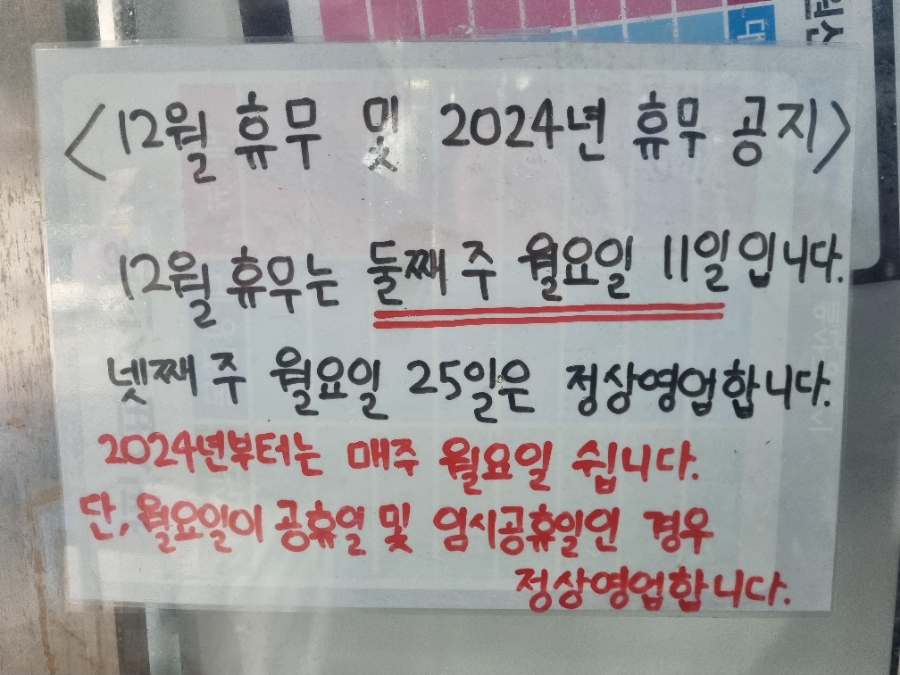 <12월 휴무 및 2024년 휴무 공지>
12월 휴무는 둘째 주 월요일 11일입니다.
넷째 주 월요일 25일은 정상영업합니다.
2024년부터는 매주 월요일 쉽니다.
단, 월요일이 공휴일 및 임시공휴일인 경우
정상영업합니다.